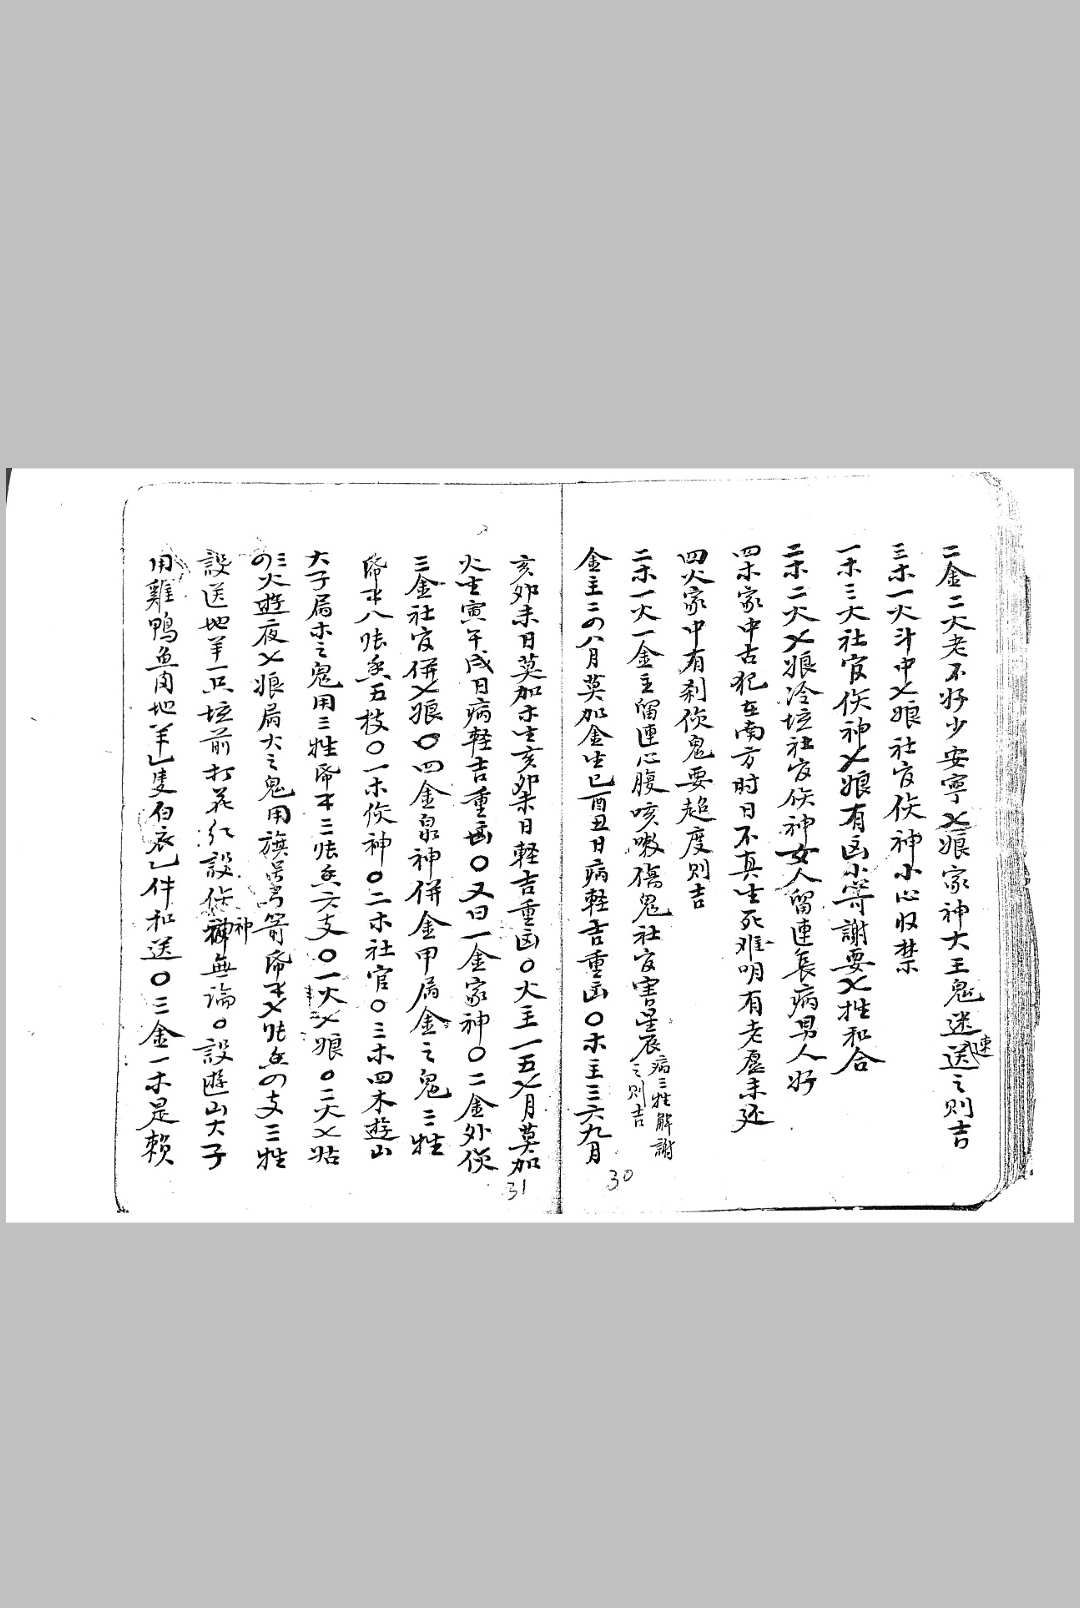 二金二火老不好少安寧乂娘家神大王鬼迷送之則吉
速
三木一火斗中乂娘社官伤神小心收禁
一木三火社官伤神乂娘有凶小寄謝要乂牲和合
二木二火乂娘冷坛社官伤神女人留連長病男人好
四木家中古犯在南方时日不真生死难明有老愿未还
四火家中有刹伤鬼要超度則吉
二木一火一金主留連心腹咳嗽傷鬼社官害星辰病三牲解謝之則吉
金主二四八月莫加金生巳酉丑日病軽吉重凶〇木主三六九月
30
亥卯未日莫加木生亥卯未日軽吉重凶〇火主一五七月莫加
火生寅午戌日病軽吉重凶〇又曰一金家神〇二金外伤
三金社官併乂娘〇四金泉神併金甲屬金之鬼三牲
八張香五枝〇一木伤神〇二木社官〇三木四木遊山
大子屬木之鬼用三牲 三張香六支〇一火乂娘〇二火乂姑
三火遊夜乂娘屬火之鬼用旗 寄 乂張香四支三牲
設送地羊一只坛前打花红設伤神無論〇設遊山大子
神
用雞鴨魚肉地羊乙隻白衣乙件和送〇三金一木是賴
31